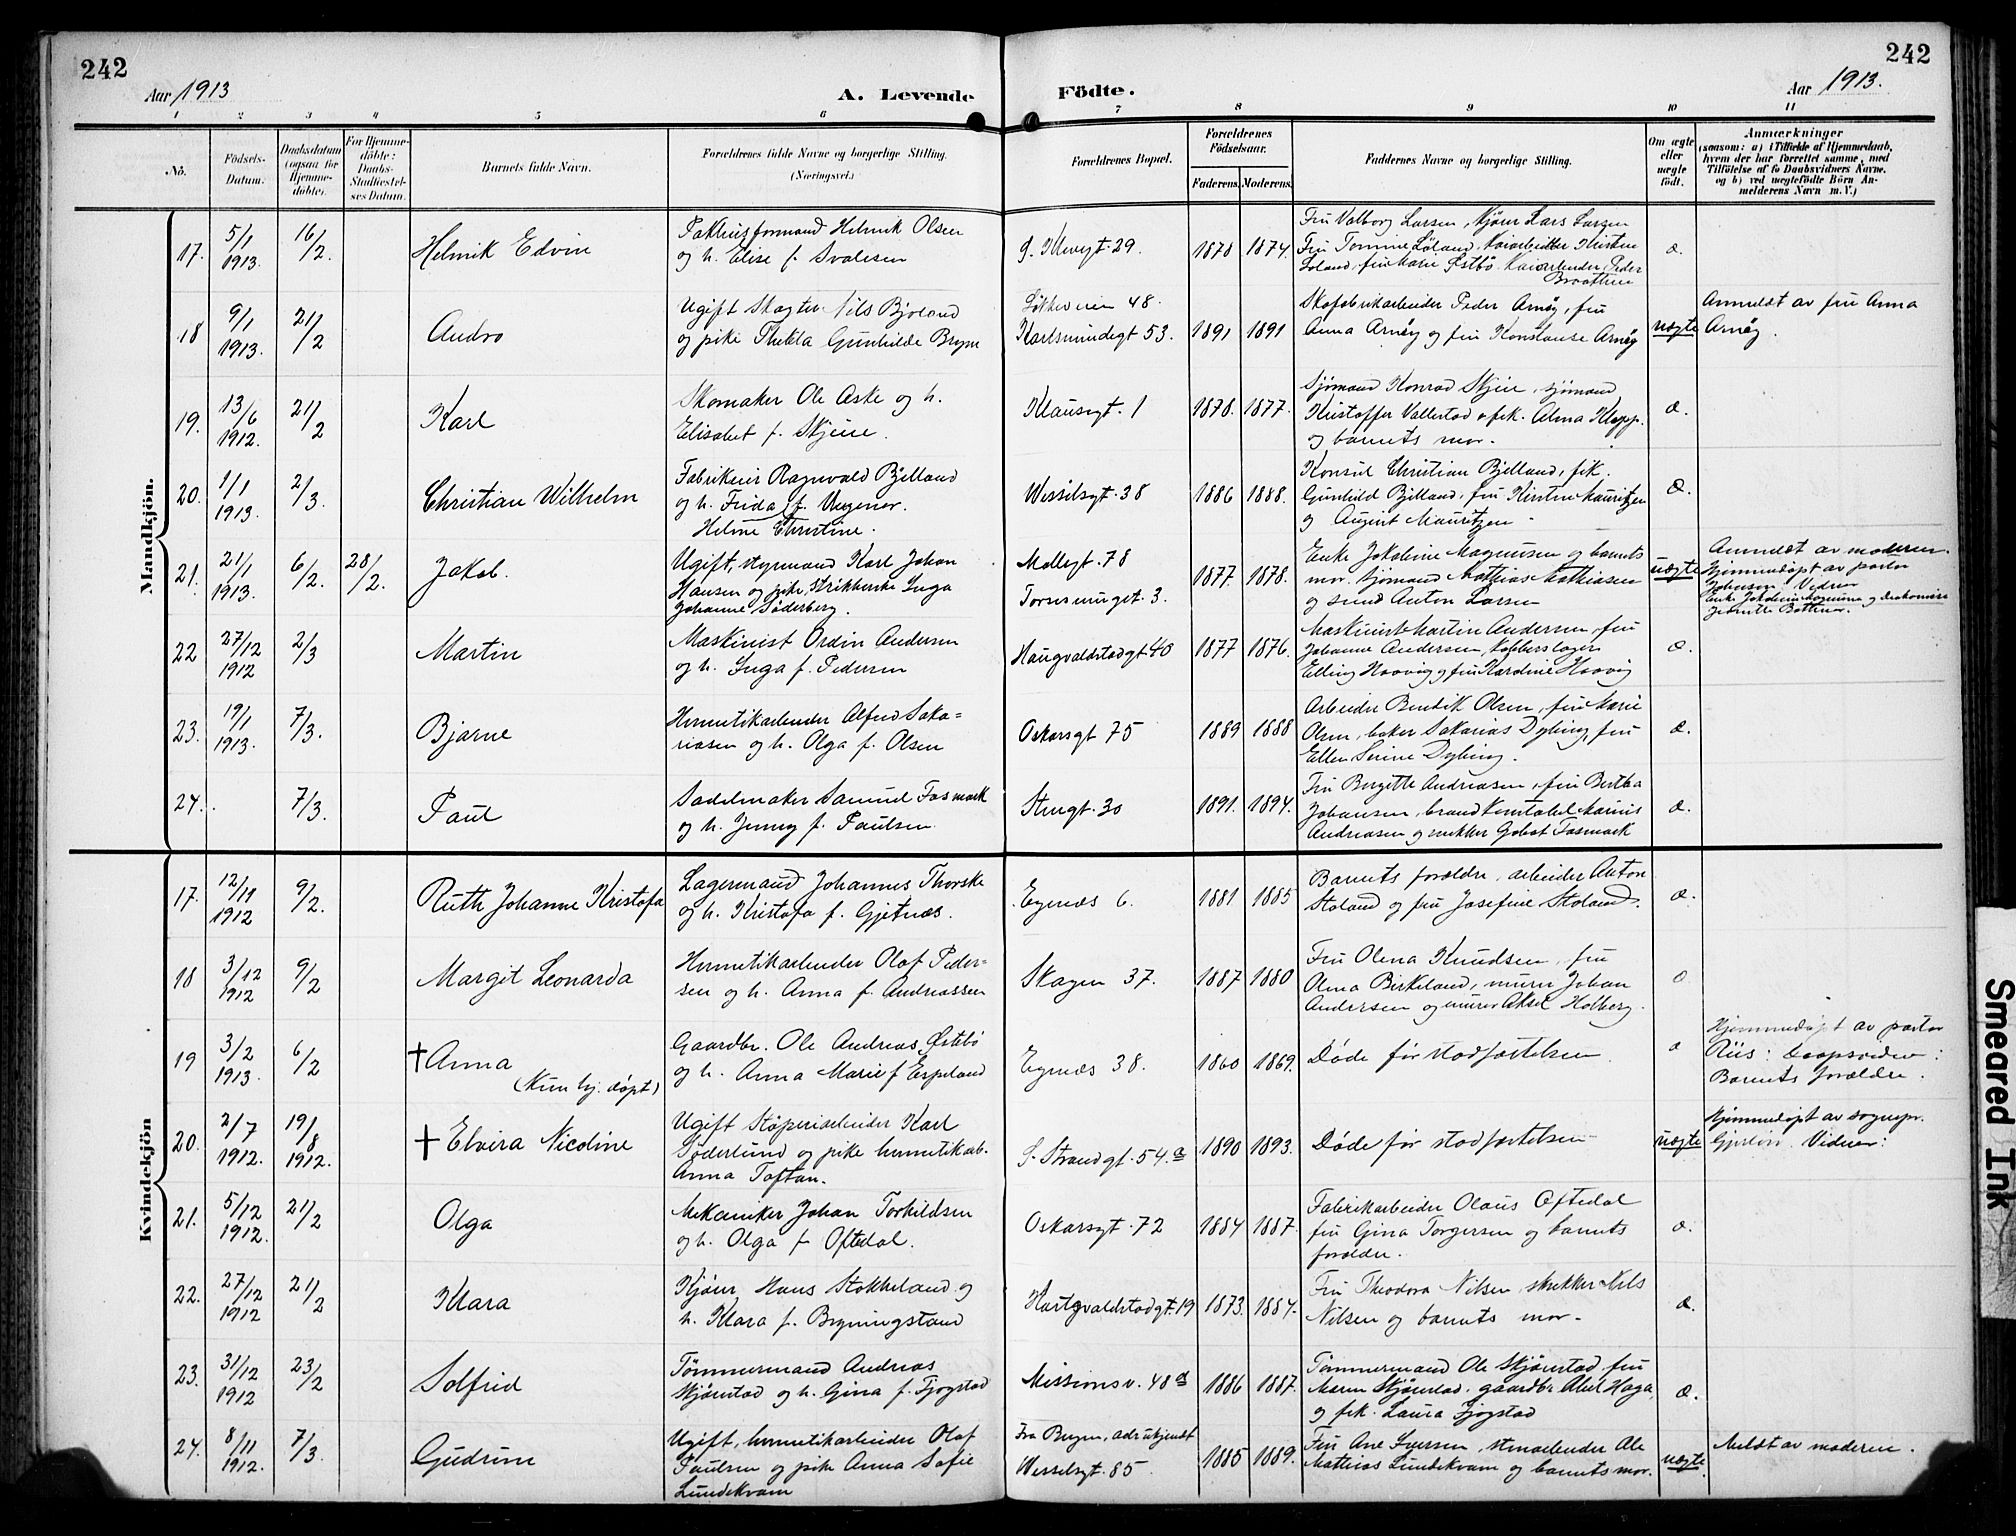 242
242
Aar 1913
A. Levende Födte.
Aar 1913.
1 2 3 4 5 6 7 8 9 10 11
No.
Födsels-Datum.
Daabsdatum (ogsaa for Hjemmedöbte).
For Hjemmedöbte: Daabs-Stadfæstelses Datum.
Barnets fulde Navn.
Forældrenes fulde Navne og borgerlige Stilling. (Næringsvei.)
Forældrenes Bopæl.
Forældrenes Födselsaar.
Faderens. Moderens.
Faddernes Navne og borgerlige Stilling.
Om ægte eller uægte födt.
Anmærkninger
(saasom: a) i Tilfælde af Hjemmedaab, hvem der har forrettet samme, med Tilföielse af to Daabsvidners Navne. og b) ved uægtefödte Börn Anmelderens Navn m. V.)
Mandkjön.
17. 5/1 1913. 16/2. Helmik Edvin
Pakhusformand Helmik Olsen
og h. Elise f. Svalesen
29. 1878 1874.
Fru Valborg Larsen, Kjører Lars Larsen
Fru Tomine Löland, Kaiarbeider Kristen
Löland, fru Marie Østbö. Kaiarbeider Peder
æ.
18 9/1 1913. 21/2 Andro
Ugift Slagter Nils Bjoland
og pike Thekla Gunhilde Bryne
Løkkeveien 48.
Karlsmindegt 53. 1891 1891
Skofabrikarbeider Peder Arnøy, fru
Anna Arnøy og fru Konstanse Arnøy
uægte
Anmeldt av fru Anna
Arnøy.
19. 13/6 1912. 21/2 Karl
Skomaker Ole Aske og h.
Elisabet f. Skjeie.
Klausgt. 1 1878. 1877.
Sjømand Konrad Skjeie, sjømand
Kristoffer Vallestad, frk. Alma Klepp.
og barnets mor.
æ.
20. 1/1 1913. 2/3. Christian Wilhelm
Fabrikeier Ragnvald Bjelland
og h. Frida f. Wegener.
Helene Christine.
Wesselsgt. 38 1886 1888.
Konsul Christian Bjelland, frk.
Gunhild Bjelland, fru Kirsten Mauritzen
og August Mauritzen.
æ.
21. 21/1 1913. 6/2. 28/2. Jakob.
Ugift, styrmand Karl Johan
Hansen og pike, strikkerske Inga
Johanne Söderberg.
Møllegt. 78
3. 1877. 1878.
Enke Jakobine Magnussen og barnets
mor. Sjømand Mathias Mathiasen
og smed Anton Larsen
uægte
Anmeldt av moderen.
Hjemmedøpt av pastor
22 27/12 1912 2/3 Martin
Maskinist Ordin Andersen
og h. Inga f. Pedersen
Haugvaldstadgt 40 1877 1876.
Maskinist Martin Andersen, fru
Johanne Andersen, Kobberslager
Elling Haavig og fru Karoline Haavig
æ.
23. 19/1 1913. 7/3. Bjarne
Hermetikarbeider Alfred Saka=
riasen og h. Olga f. Olsen
Oskarsgt 75 1889 1888
Arbeider Bendik Olsen, fru Marie
Olsen, baker Sakarias Dybing, fru
Ellen Serine Dybing.
æ.
24. 7/3. Paul
Sadelmaker Samuel Fosmark
og h. Jenny f. Paulsen.
Stengt. 30 1891. 1894.
Fru Bergitte Andreasen, fru Bertha
Johansen, brandkonstabel Marius
Andreasen og snekker Gabot Fosmark
æ.
Kvindekjön
17. 12/11 1912 9/2. Ruth Johanne Kristofa
Lagermand Johannes Thorske
og h. Kristofa f. Gjetnæs.
Egenæs 6. 1881 1885
Barnets forældre, arbeider Anton
Stoland og fru Josefine Stoland.
æ.
18 3/12 1912 9/2 Margit Leonarda
Hermetikarbeider Olaf Peder-
sen og h. Anna f. Andreassen
Skagen 37. 1887 1880
Fru Olena Knudsen, fru
Olma Birkeland, murer Johan
Andersen og murer Aksel Holberg.
19 3/2 1913. 6/2 †Anna
(Kun hj. døpt)
Gaardbr. Ole Andreas Østebö
og h. Anna Marie f. Espeland
Egenæs 38. 1860 1869.
Døde før stadfæstelsen.
æ
Hjemmedøpt av pastor
Riis: Daapsvidner:
Barnets forældre.
20. 2/7 1912. 19/8 1912. †Elvira Nicoline
Ugift Støperiarbeider Karl
Söderlund og pike hermetikarb.
Anna Toftan.
S. Strandgt. 54a 1890 1893.
Døde før stadfæstelsen
uægte
Hjemmedøpt av sognepr.
Gjerløv. Vidner:
21. 5/12 1912. 21/2 Olga
Mekaniker Johan Torkildsen
og h. Olga f. Oftedal.
Oskarsgt. 72 1884 1887.
Fabrikarbeider Olaus Oftedal
fru Gina Torgersen og barnets
forældre.
æ.
22. 27/12 1912 21/2 Klara
Kjører Hans Stokkeland og
h. Klara f. Bryningsland
19 1873. 1884.
Fru Theodora Nilsen, snekker Nils
Nilsen og barnets mor.
æ.
23. 31/12 1912 23/2 Solfrid
Tømmermand Andreas
Skjørestad og h. Gina f. Fjogstad
Missionsv. 48a 1886 1887.
Tømmermand Ole Skjørestad, fru
Maren Skjørestad, gaardbr. Abel Haga,
og frk. Laura Fjogstad
æ.
24. 8/11 1912. 7/3. Gudrun
Ugift, hermetikarbeider Olaf
Paulsen og pike Anna Sofie
Lundekvam
Fra Bergen, adr ukjendt
Wesselsgt. 85. 1885 1889.
Fru Ane Iversen, stenarbeider Ole
Mathias Lundekvam og barnets mor.
uægte
Meldt av moderen.
Smeared Ink